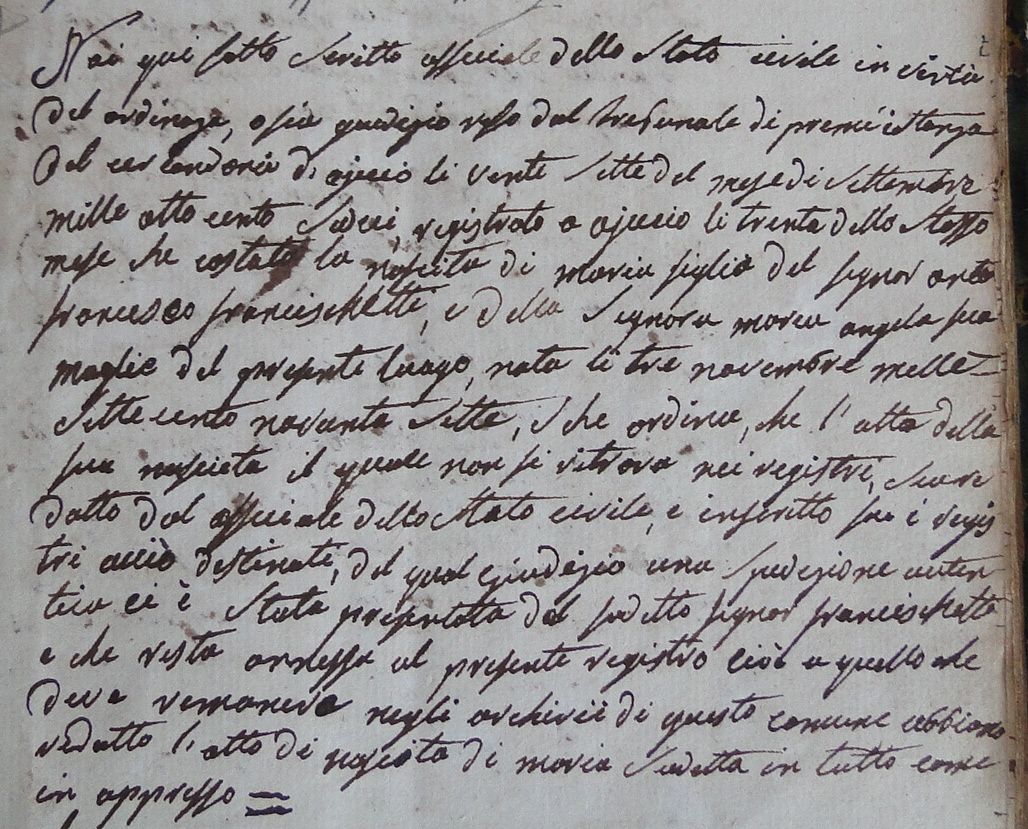 Noi qui sotto scritto officiale dello Stato civile in virtù
del ordinaza, o sia giudizio reso dal tribunale di prem'istanza
del cercondario di ajaccio li venti sette del mese di settembre
mille otto cento sedeci, registrato a ajaccio li trenta dello stesso
mese che costata la nascita di maria figlia del signor anto
francesco franceschetti, e della Signora maria angela sua
moglie del presente luogo, nata li tre novembre mille
sette cento novanta sette, e che ordina, che l'atto della
sua nascita il quale non si ritrova nei registri, sia re
datto dal officiale dello Stato civile, e inscritto su i regis
tri acciò destinati, del qual giudizio una spedizione auten
tica ci è stata presentata dal sudetto signor franceschetti
e che resta annessa al presente registro cioè a quello che
deve remanere negli archivii di questo comune abbiamo
redatto l'atto di nascita di maria sudetta in tutto come
in appresso =